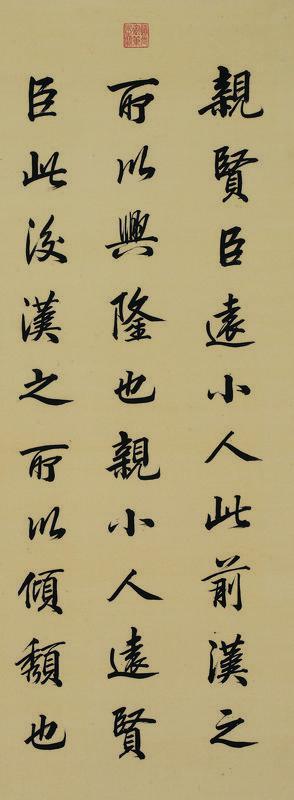 親賢臣遠小人此前漢之
所以興隆也親小人遠賢
臣此後漢之所以傾頹也